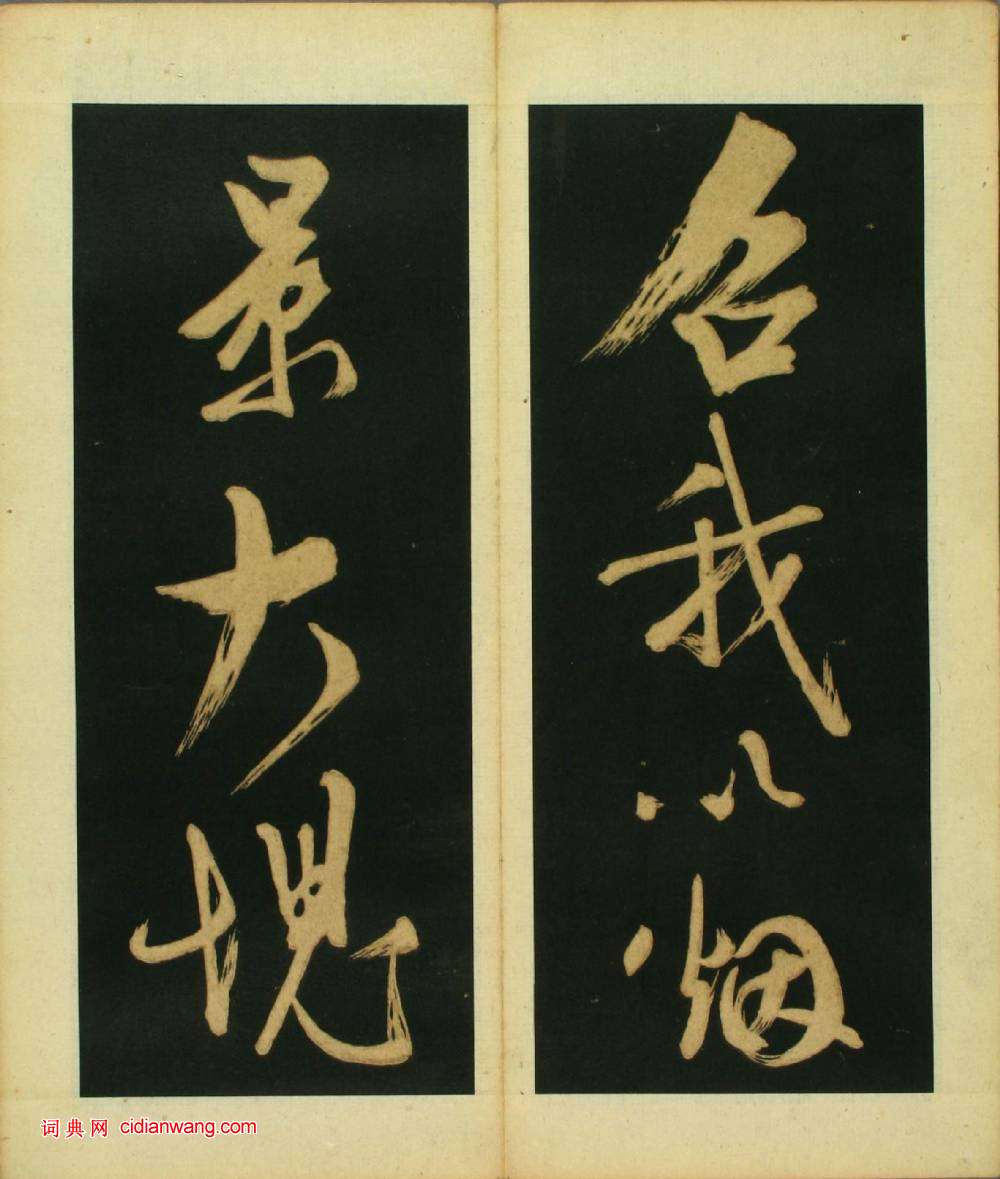 召我以烟
景大塊
词典网 cidianwang.com